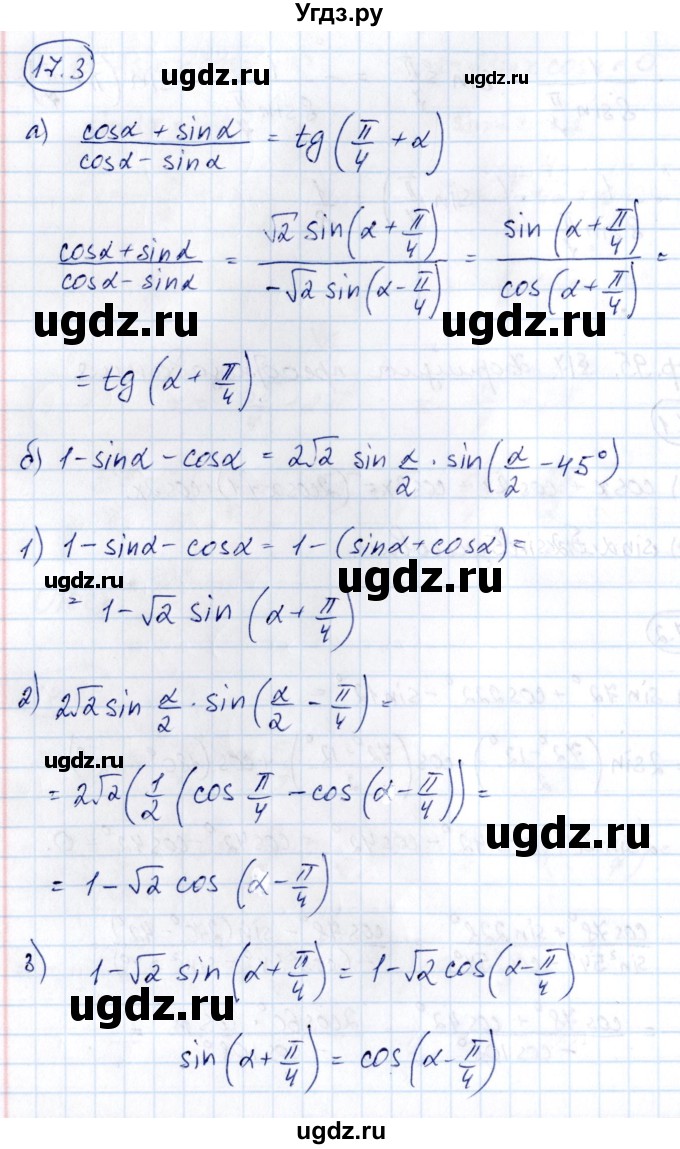 Угдз.ру
17.3
ugdz.ru ugdz.ru
а) (cosα + sinα)/(cosα - sinα) = tg(π/4 + α)
(cosα + sinα)/(cosα - sinα) = (√2 sin(α + π/4))/(-√2 sin(α - π/4)) = (sin(α + π/4))/(cos(α + π/4)) =
ugdz.ru ugdz.ru
= tg(α + π/4)
б) 1 - sinα - cosα = 2√2 sin α/2 · sin(α/2 - 45°)
1) 1 - sinα - cosα = 1 - (sinα + cosα) =
ugdz.ru ugdz.ru
= 1 - √2 sin(α + π/4)
2) 2√2 sin α/2 · sin(α/2 - π/4) =
ugdz.ru
= 2√2(1/2(cos π/4 - cos(α - π/4)) =
ugdz.ru
= 1 - √2 cos(α - π/4)
3) 1 - √2 sin(α + π/4) = 1 - √2 cos(α - π/4)
ugdz.ru ugdz.ru
sin(α + π/4) = cos(α - π/4)
ugdz.ru